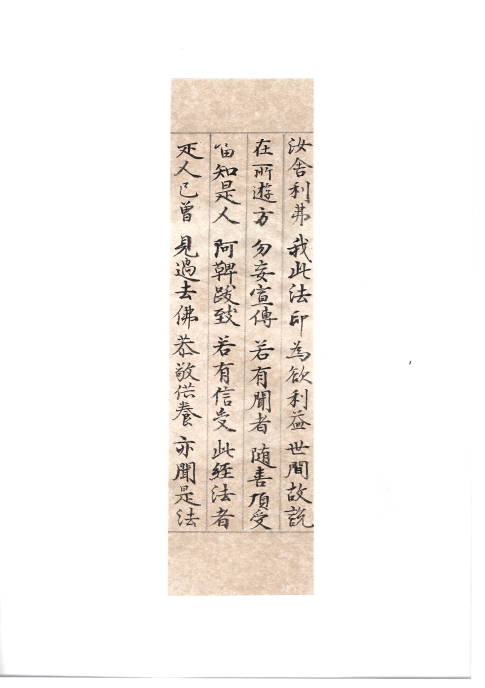 汝舍利弗 我此法印 為欲利益 世間故說
在所遊方 勿妄宣傳 若有聞者 随喜頂受
當知是人 阿鞞跋致 若有信受 此經法者
是人已曾 見過去佛 恭敬供養 亦聞是法